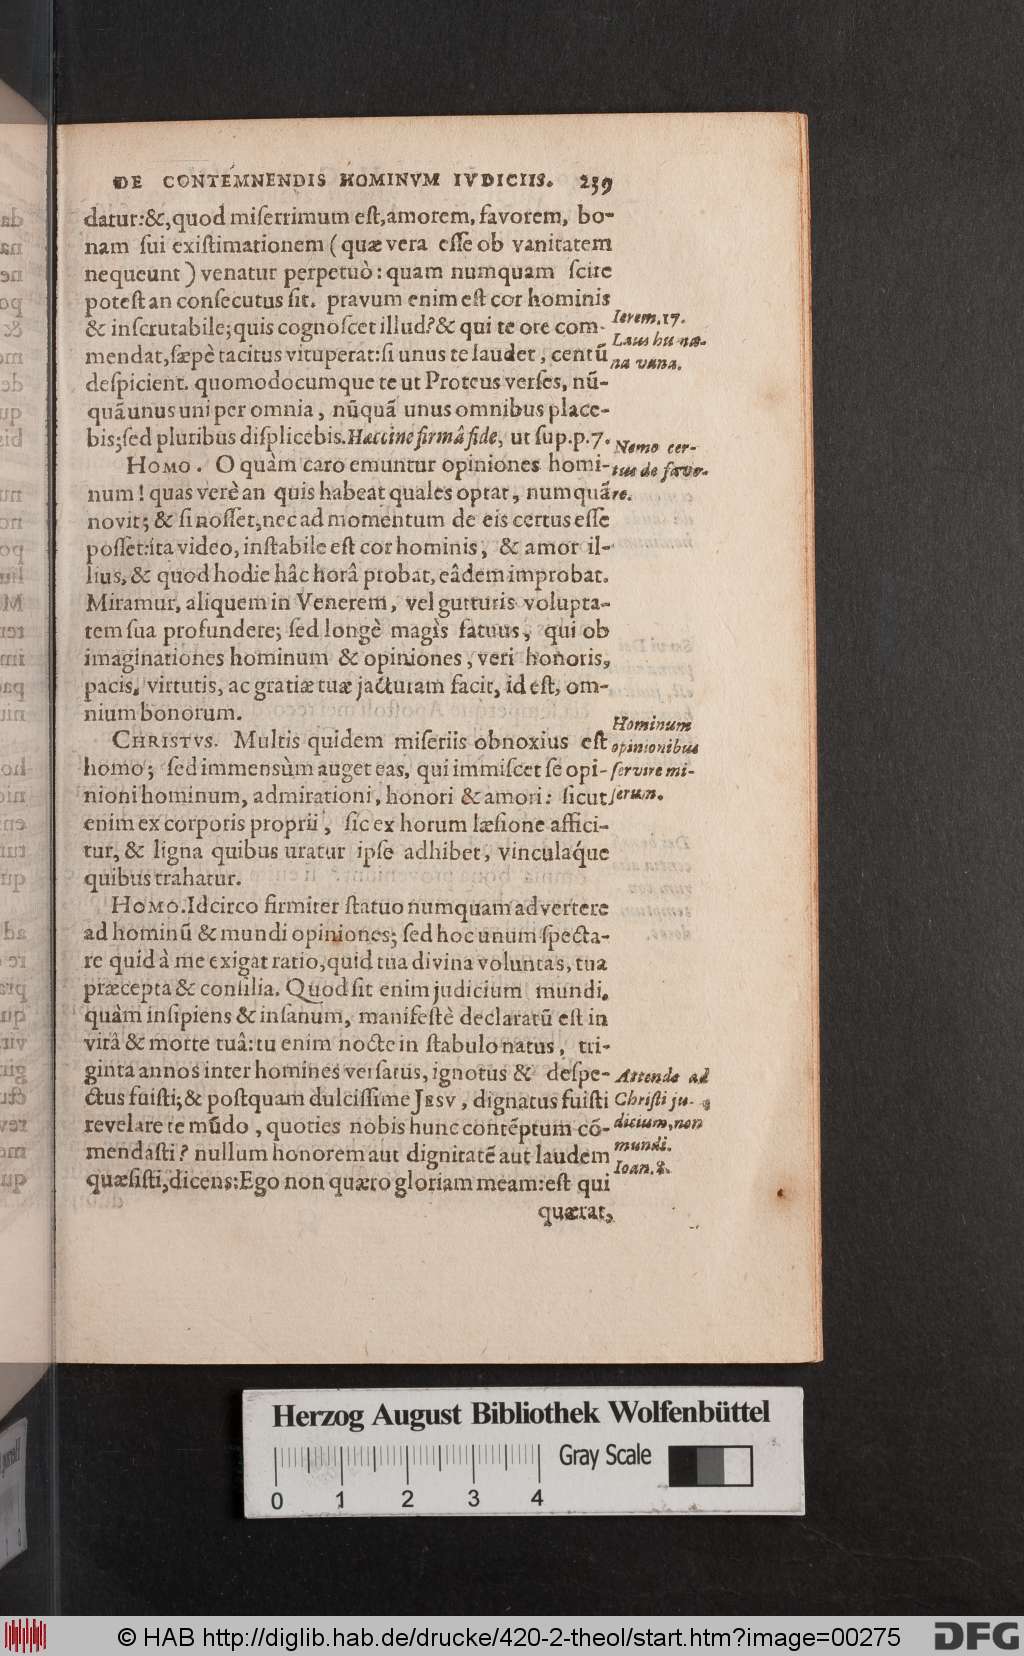 DE CONTEMNENDIS HOMINVM IVDICIIS. 239
datur:&, quod miſerrimum eſt, amorem, favorem, bo-
nam ſui exiſtimationem (quæ vera eſſe ob vanitatem
nequeunt) venatur perpetuò: quam numquam ſcire
poteſt an conſecutus ſit. pravum enim eſt cor hominis
& inſcrutabile; quis cognoſcet illud? & qui te ore com-
mendat, ſæpè tacitus vituperat: ſi unus te laudet, centũ
deſpicient. quomodocumque te ut Proteus verſes, nũ-
quã unus uni per omnia, nũquã unus omnibus place-
bis; ſed pluribus diſplicebis. Haccine firmâ fide, ut ſup.p.7.
Ierem.17.
Laus humæ-
na vana.
Nemo cer-
tus de favo-
re.
HOMO. O quàm caro emuntur opiniones homi-
num! quas verè an quis habeat quales optat, numquã
novit; & ſi noſſet, nec ad momentum de eis certus eſſe
poſſet: ita video, inſtabile eſt cor hominis, & amor il-
lius, & quod hodie hâc horâ probat, eâdem improbat.
Miramur, aliquem in Venerem, vel gutturis volupta-
tem ſua profundere; ſed longè magìs fatuus, qui ob
imaginationes hominum & opiniones, veri honoris,
pacis, virtutis, ac gratiæ tuæ jacturam facit, id eſt, om-
nium bonorum.
CHRISTVS. Multis quidem miſeriis obnoxius eſt
homo; ſed immensùm auget eas, qui immiſcet ſe opi-
nioni hominum, admirationi, honori & amori: ſicut
enim ex corporis proprii, ſic ex horum læſione affici-
tur, & ligna quibus uratur ipſe adhibet, vinculaq́ue
quibus trahatur.
Hominum
opinionibus
ſervire mi-
ſerum.
HOMO. Idcirco firmiter ſtatuo numquam advertere
ad hominũ & mundi opiniones; ſed hoc unum ſpecta-
re quid à me exigat ratio, quid tua divina voluntas, tua
præcepta & conſilia. Quod ſit enim judicium mundi,
quàm inſipiens & inſanum, manifeſtè declaratũ eſt in
vitâ & morte tuâ: tu enim nocte in ſtabulo natus, tri-
ginta annos inter homines verſatus, ignotus & deſpe-
ctus fuiſti; & poſtquam dulciſſime JESV, dignatus fuiſti
revelare te mũdo, quoties nobis hunc contẽptum cõ-
mendaſti? nullum honorem aut dignitatẽ aut laudem
quæſiſti, dicens: Ego non quæro gloriam meam: eſt qui
Attende ad
Chriſti ju-
dicium, non
mundi.
Ioan.8.
quærat,
Herzog August Bibliothek Wolfenbüttel
Gray Scale
0 1 2 3 4
© HAB http://diglib.hab.de/drucke/420-2-theol/start.htm?image=00275
DFG